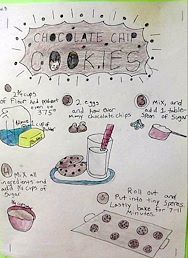 CHOCOLATE CHIP
COOKIES
2¼ cups
of flour and preheat
oven to
375°
2 eggs
and how ever
many chocolate chips
mix, and
add 1 table-
spoon of
sugar
Mix all
ingredients and
add ¾ cups of
sugar
Roll out and
Put into tiny spheres.
Lastly bake for 9-11
Minutes.